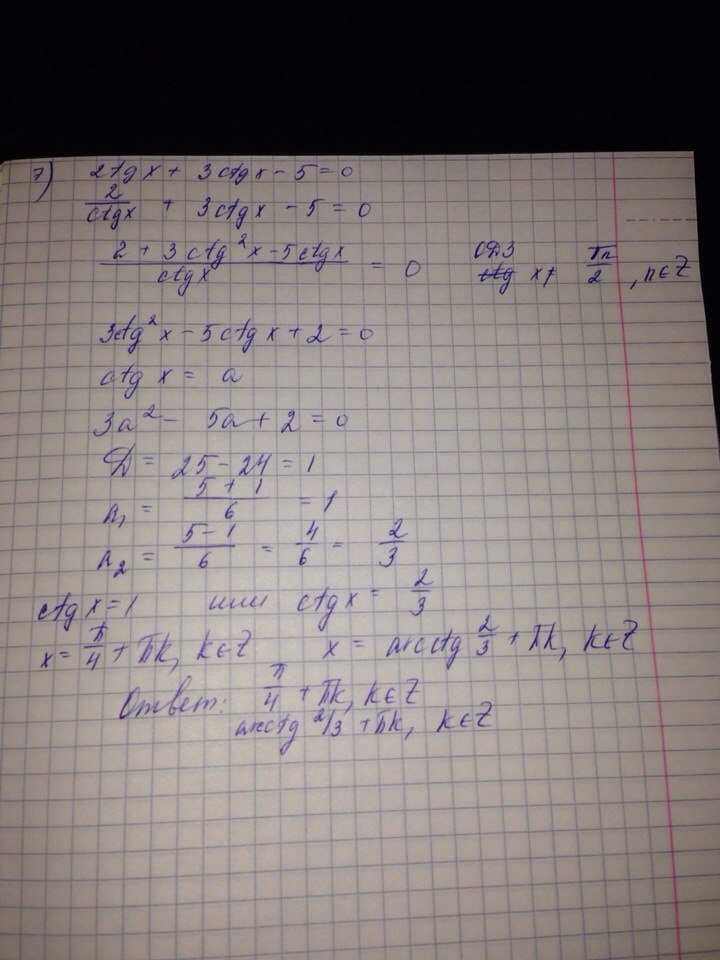 7) 2tgx + 3ctgx - 5 = 0
2/ctgx + 3ctgx - 5 = 0
(2 + 3ctg²x - 5ctgx)/ctgx = 0 ОДЗ x ≠ πn/2, n∈Z
3ctg²x - 5ctgx + 2 = 0
ctg x = a
3a² - 5a + 2 = 0
D = 25 - 24 = 1
a₁ = (5 + 1)/6 = 1
a₂ = (5 - 1)/6 = 4/6 = 2/3
ctg x = 1 или ctgx = 2/3
x = π/4 + πk, k∈Z x = arcctg 2/3 + πk, k∈Z
Ответ: π/4 + πk, k∈Z
arcctg 2/3 + πk, k∈Z